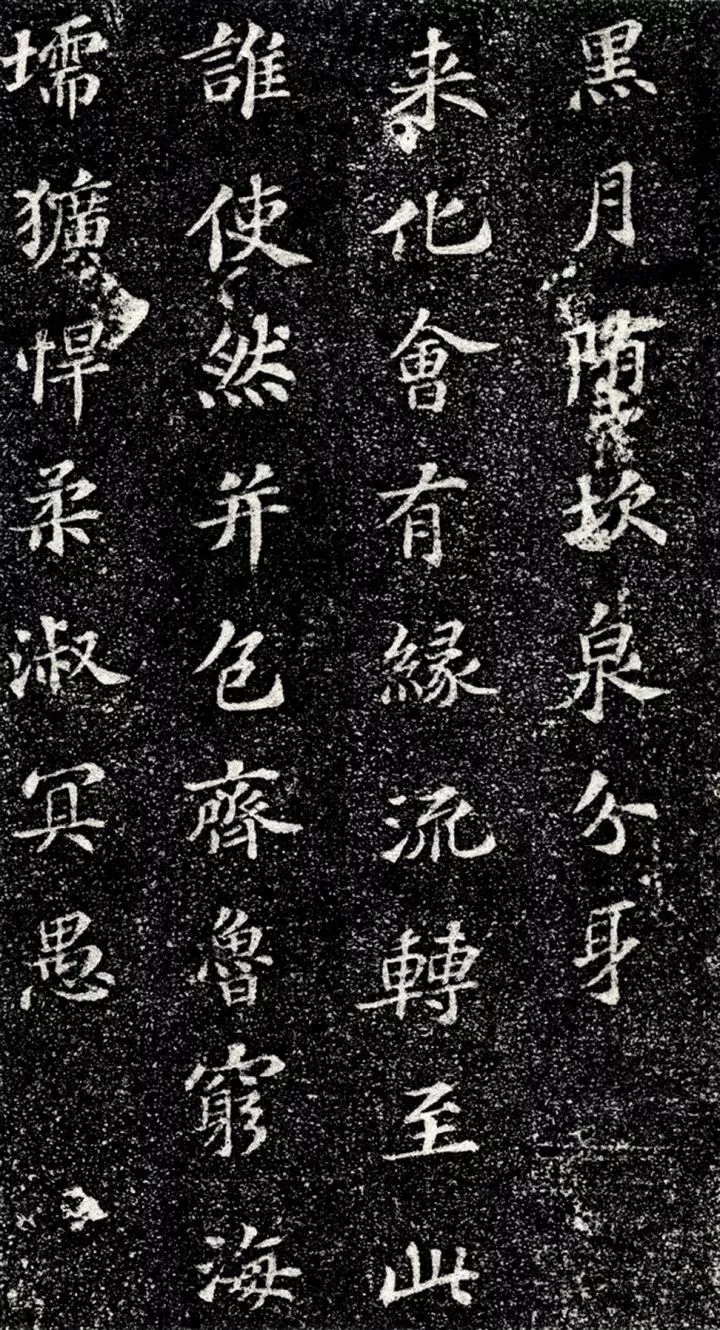 黒月隋坎泉分身
来化會有縁流轉至此
誰使然并包齊魯窮海
壖獷悍柔淑冥愚